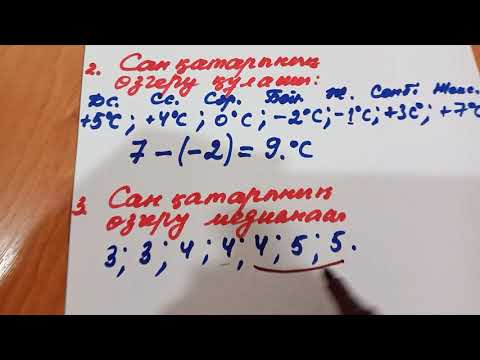 2. Сан қатарының
өзгеру құлашы:
Дс. Сс. Сәр. Бей. Ж. Сенбі. Жекс.
+5°C; +4°C; 0°C; -2°C; -1°C; +3C°; +7°C
7 - (-2) = 9.°C
3. Сан қатарының
өзгеру медианасы
3; 3; 4; 4; 4; 5; 5.